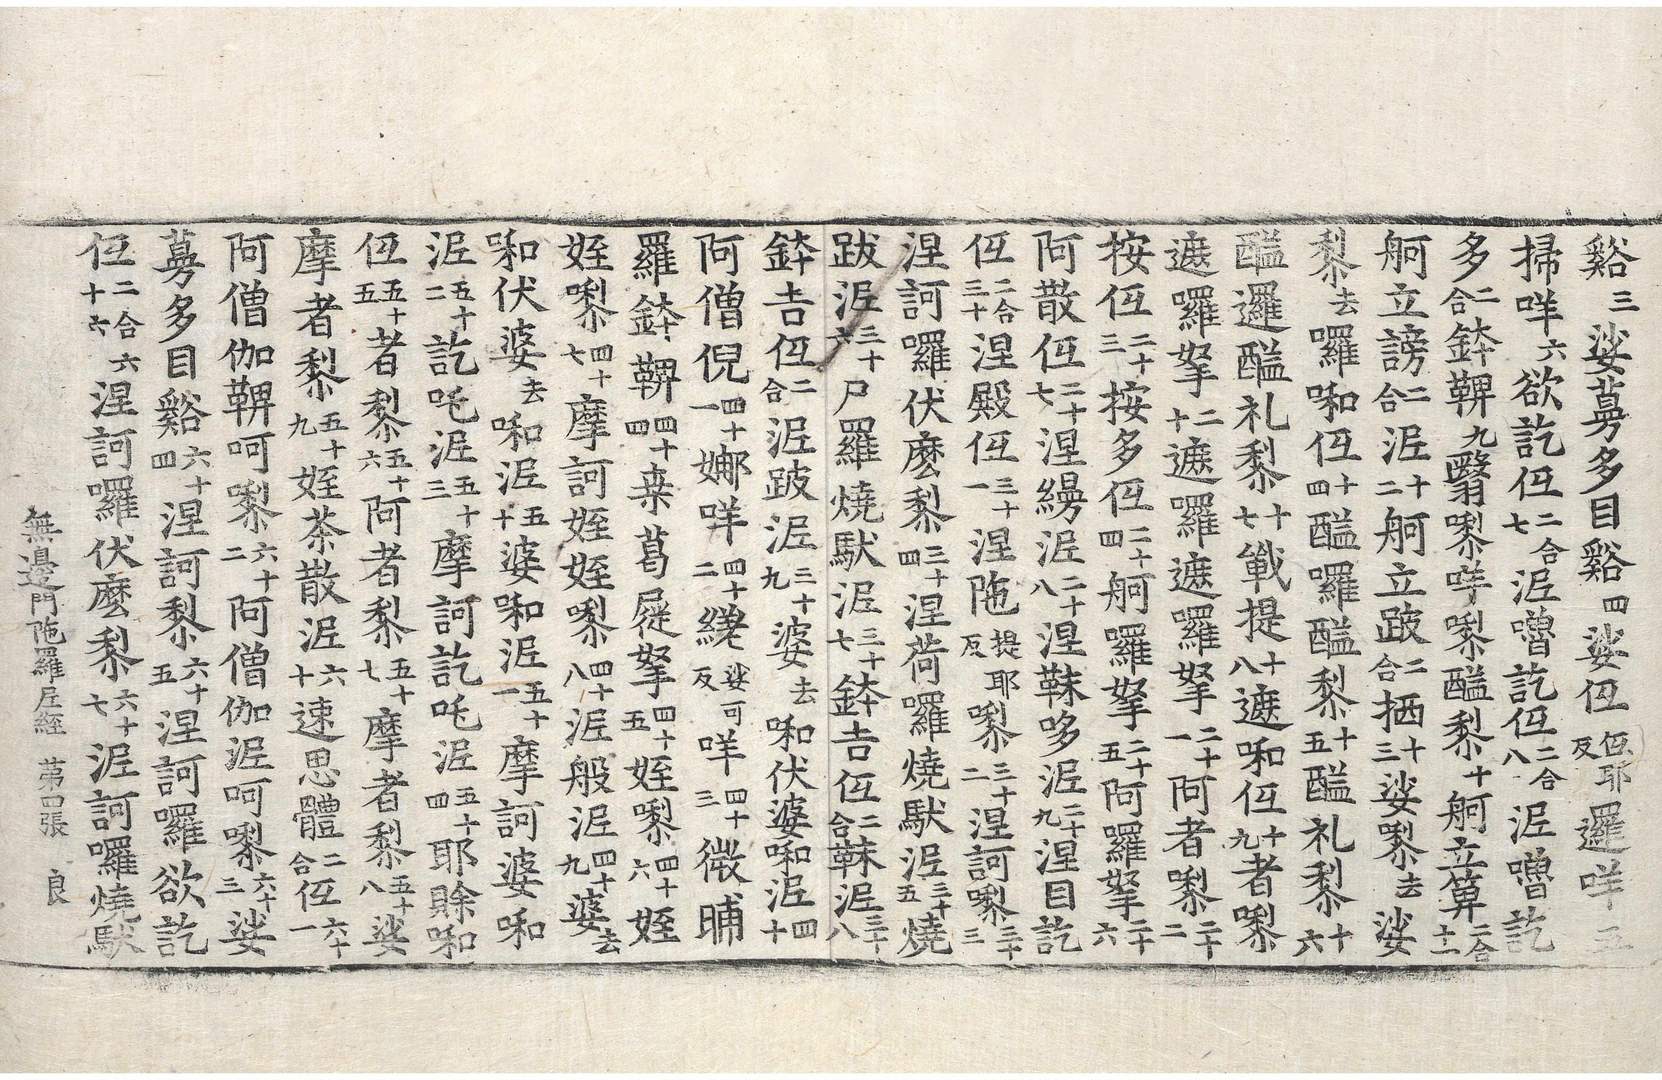 谿三娑蕚多目谿四娑伍伍耶反邏咩五
掃咩六欲訖伍二合七泥囎訖伍二合八泥囎訖
多二合鉢鞞九翳㗚咩㗚醯黎十舸立算二合十一
舸立謗二合泥十二舸立跛二合栖十三娑㗚去娑
黎去囉啝伍十四醯囉醯黎十五醯礼黎十六
醯邏醯礼黎十七戰提十八遮啝伍十九者㗚
遮囉拏二十遮囉遮囉拏二十一阿者㗚二十二
按伍二十三按多伍二十四舸囉拏二十五阿囉拏二十六
阿散伍二十七涅縵泥二十八涅靺哆泥二十九涅目訖
伍二合三十涅殿伍三十一涅陁提耶反㗚三十二涅訶㗚三十三
涅訶囉伏麼黎三十四涅荷囉燒馱泥三十五燒
跋泥三十六尸羅燒馱泥三十七鉢吉伍二合靺泥三十八
鉢吉伍二合泥跛泥三十九婆去啝伏婆啝泥四十
阿僧倪四十一娜咩四十二繞娑可反咩四十三微晡
羅鉢鞞四十四桒葛屣拏四十五姪㗚四十六姪
姪㗚四十七摩訶姪姪㗚四十八泥般泥四十九婆去
啝伏婆去啝泥五十婆啝泥五十一摩訶婆啝
泥五十二訖吒泥五十三摩訶訖吒泥五十四耶賖啝
伍五十五者黎五十六阿者黎五十七摩者黎五十八娑
摩者黎五十九姪荼散泥六十速思體二合伍六十一
阿僧伽鞞呵㗚六十二阿僧伽泥呵㗚六十三娑
蕚多目谿六十四涅訶黎六十五涅訶囉欲訖
伍二合六十六涅訶囉伏麼黎六十七泥訶囉燒馱
無邊門陁羅尼經 苐四張 良